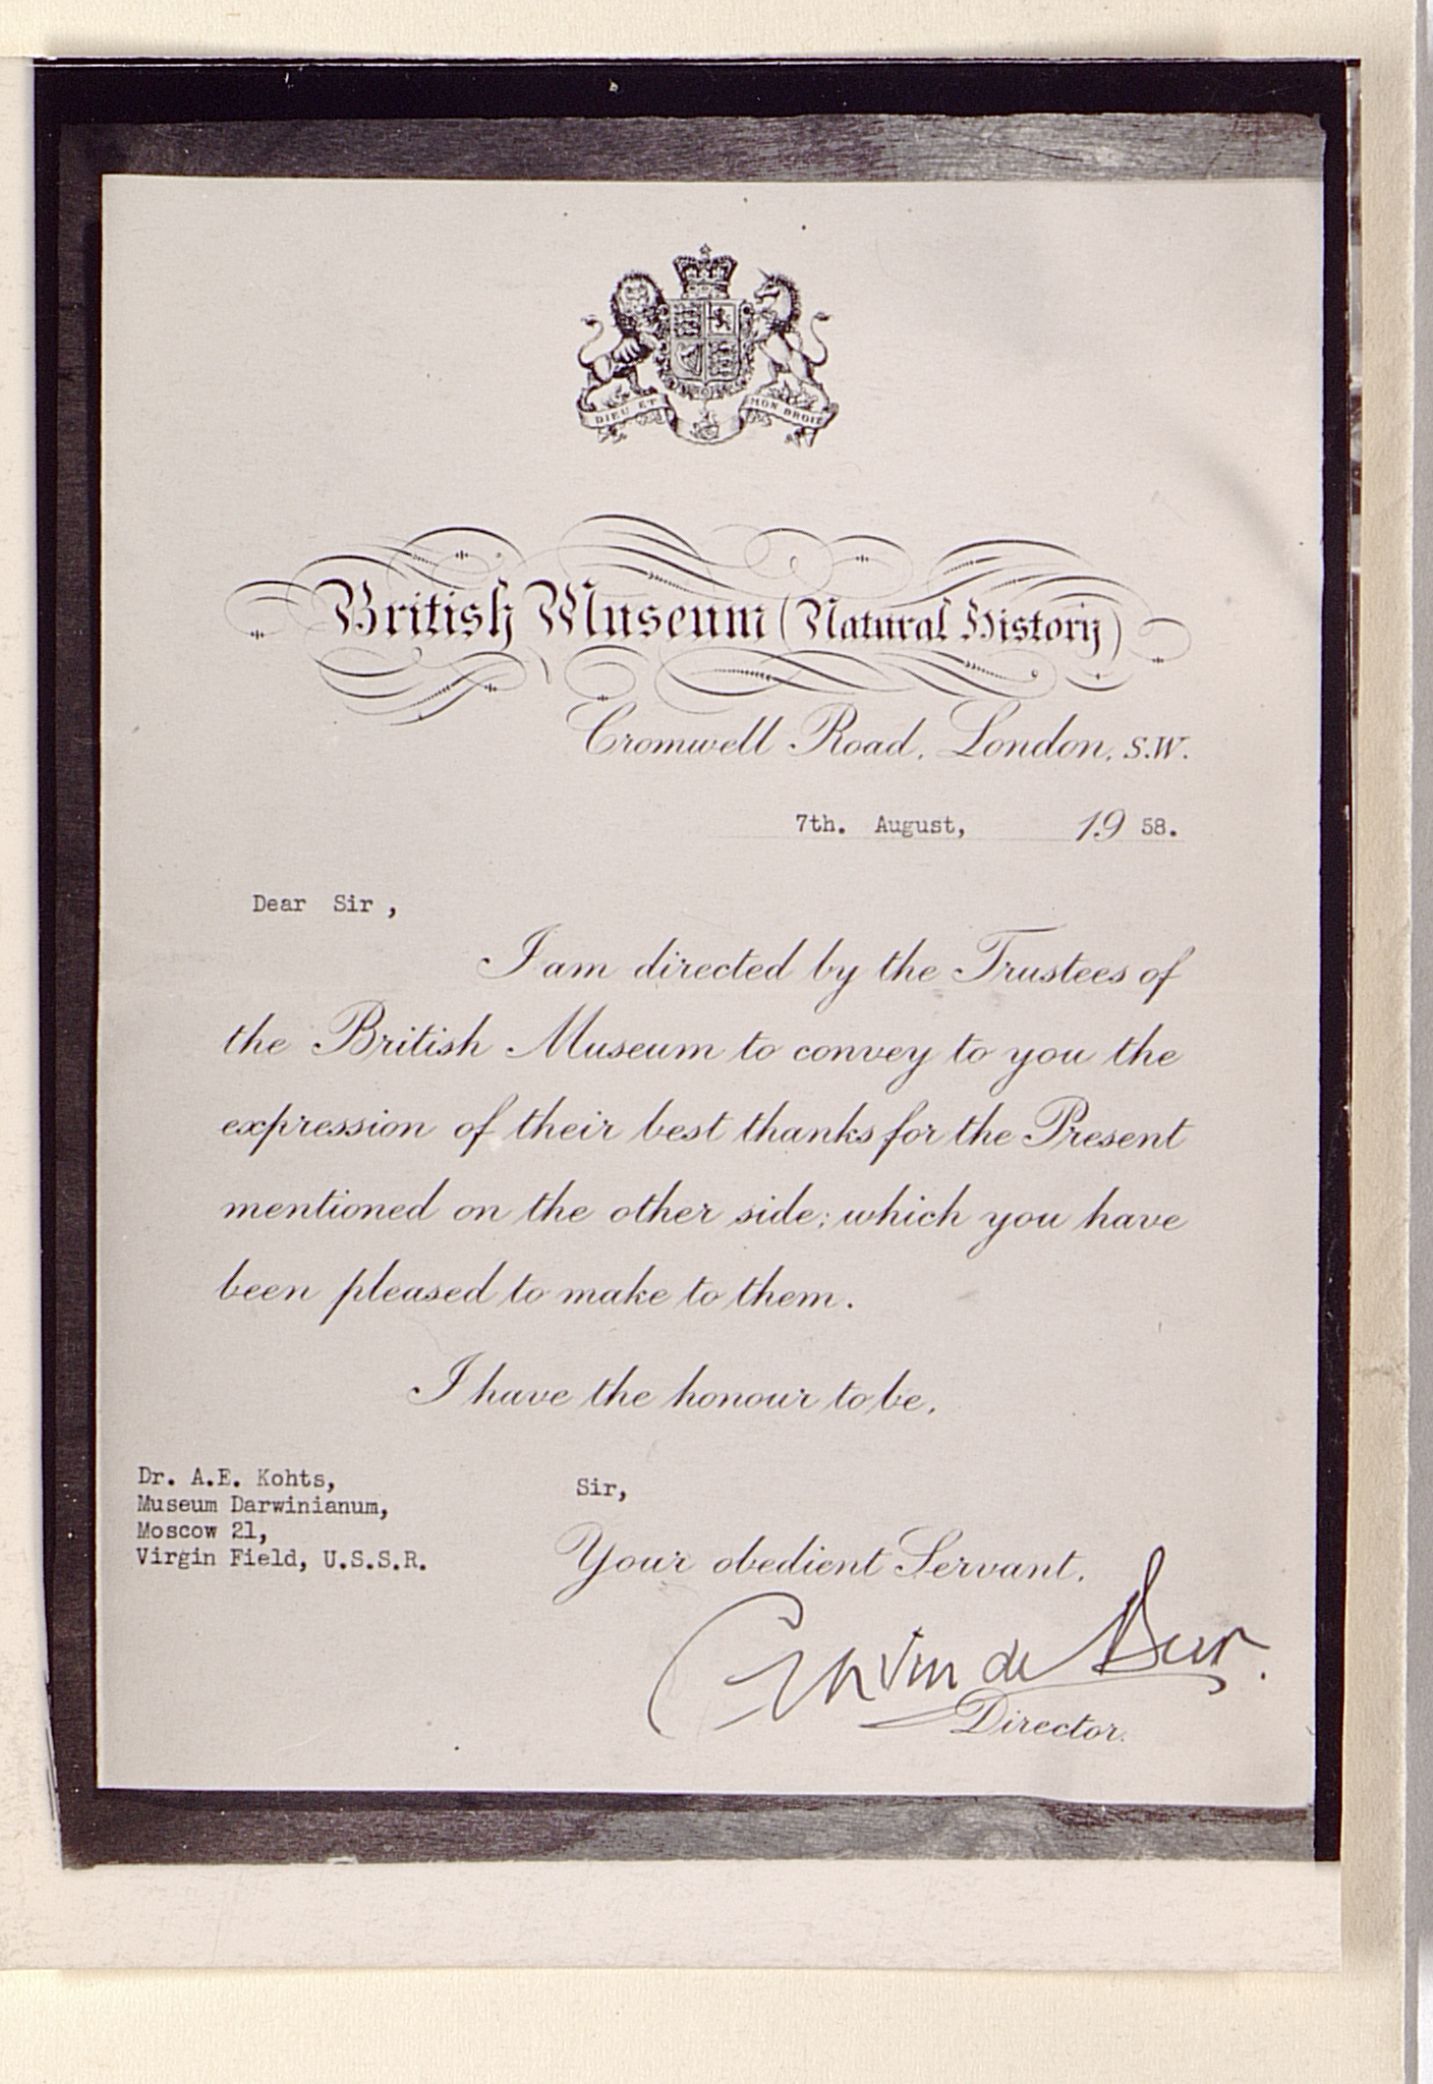 DIEU ET MON DROIT
British Museum (Natural History)
Cromwell Road, London, S.W.
7th. August, 19 58.
Dear Sir ,
I am directed by the Trustees of
the British Museum to convey to you the
expression of their best thanks for the Present
mentioned on the other side; which you have
been pleased to make to them.
I have the honour to be,
Sir,
Your obedient Servant,
Director.
Dr. A.E. Kohts,
Museum Darwinianum,
Moscow 21,
Virgin Field, U.S.S.R.